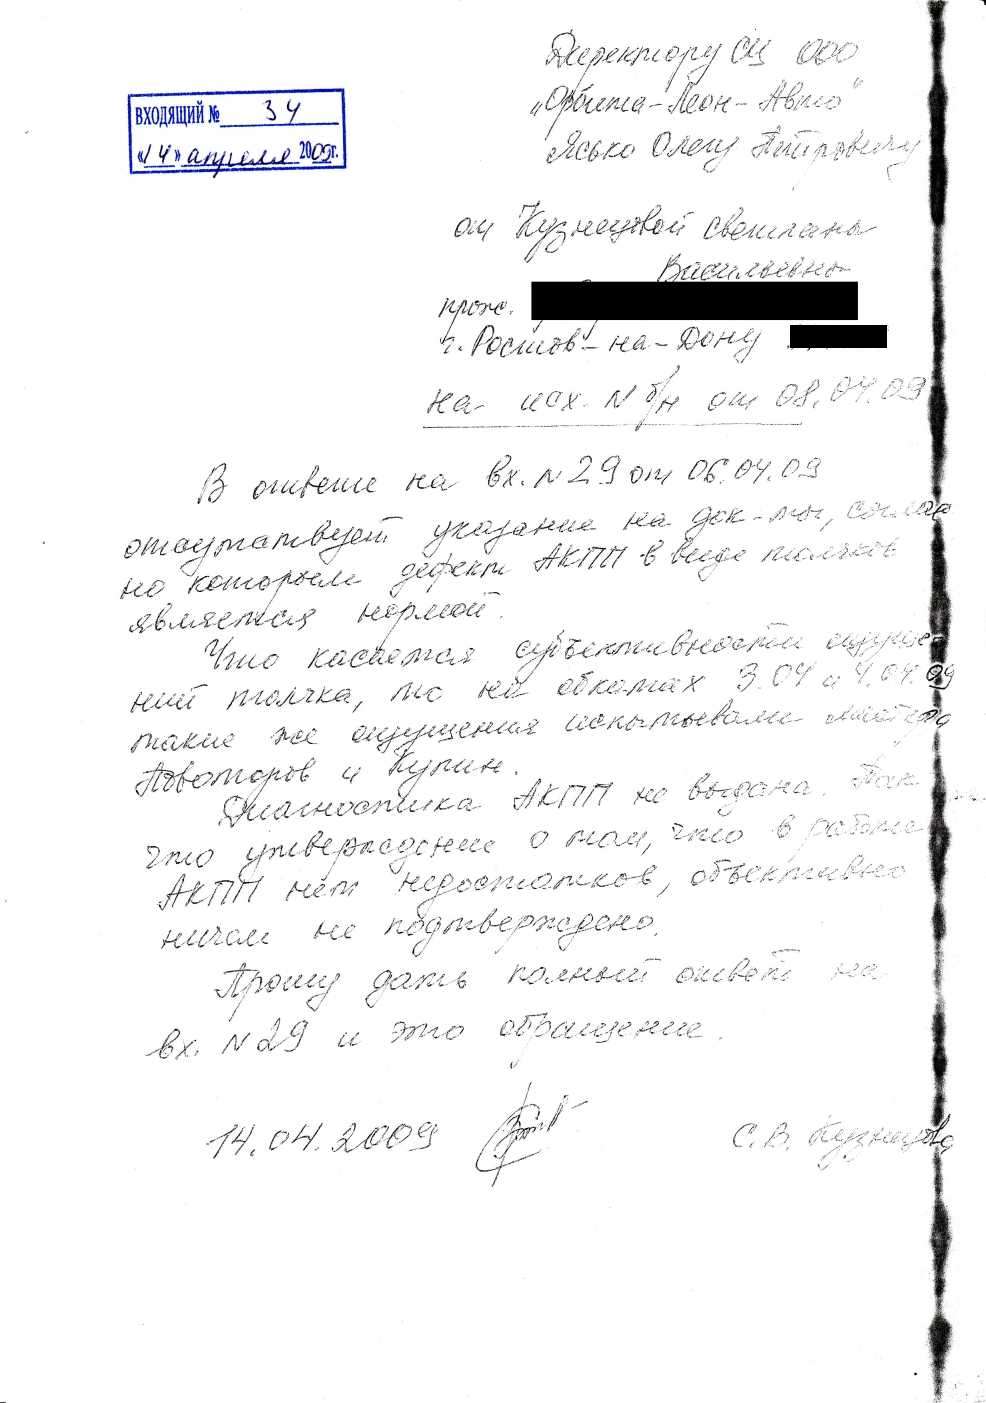 Директору СЦ ООО
"Орбита-Леон-Авто"
Ясько Олегу Петровичу
ВХОДЯЩИЙ № 34
«14» апреля 2009г.
от Кузнецовой Светланы
Васильевны
прож.
г. Ростов-на-Дону
на исх. N б/н от 08.04.09
В ответе на вх. N 29 от 06.04.09
отсутствует указание на док-ты, соглас
но которым дефект АКПП в виде толчков
является нормой.
Что касается субъективности ощуще-
ний толчка, то на обкатах 3.04 и 4.04.09
такие же ощущения испытывали мастера
Повоторов и Купин.
Диагностика АКПП не выдана. Так
что утверждение о том, что в работе
АКПП нет недостатков, объективно
ничем не подтверждено.
Прошу дать полный ответ на
вх. N 29 и это обращение.
14.04.2009
С.В. Кузнецова